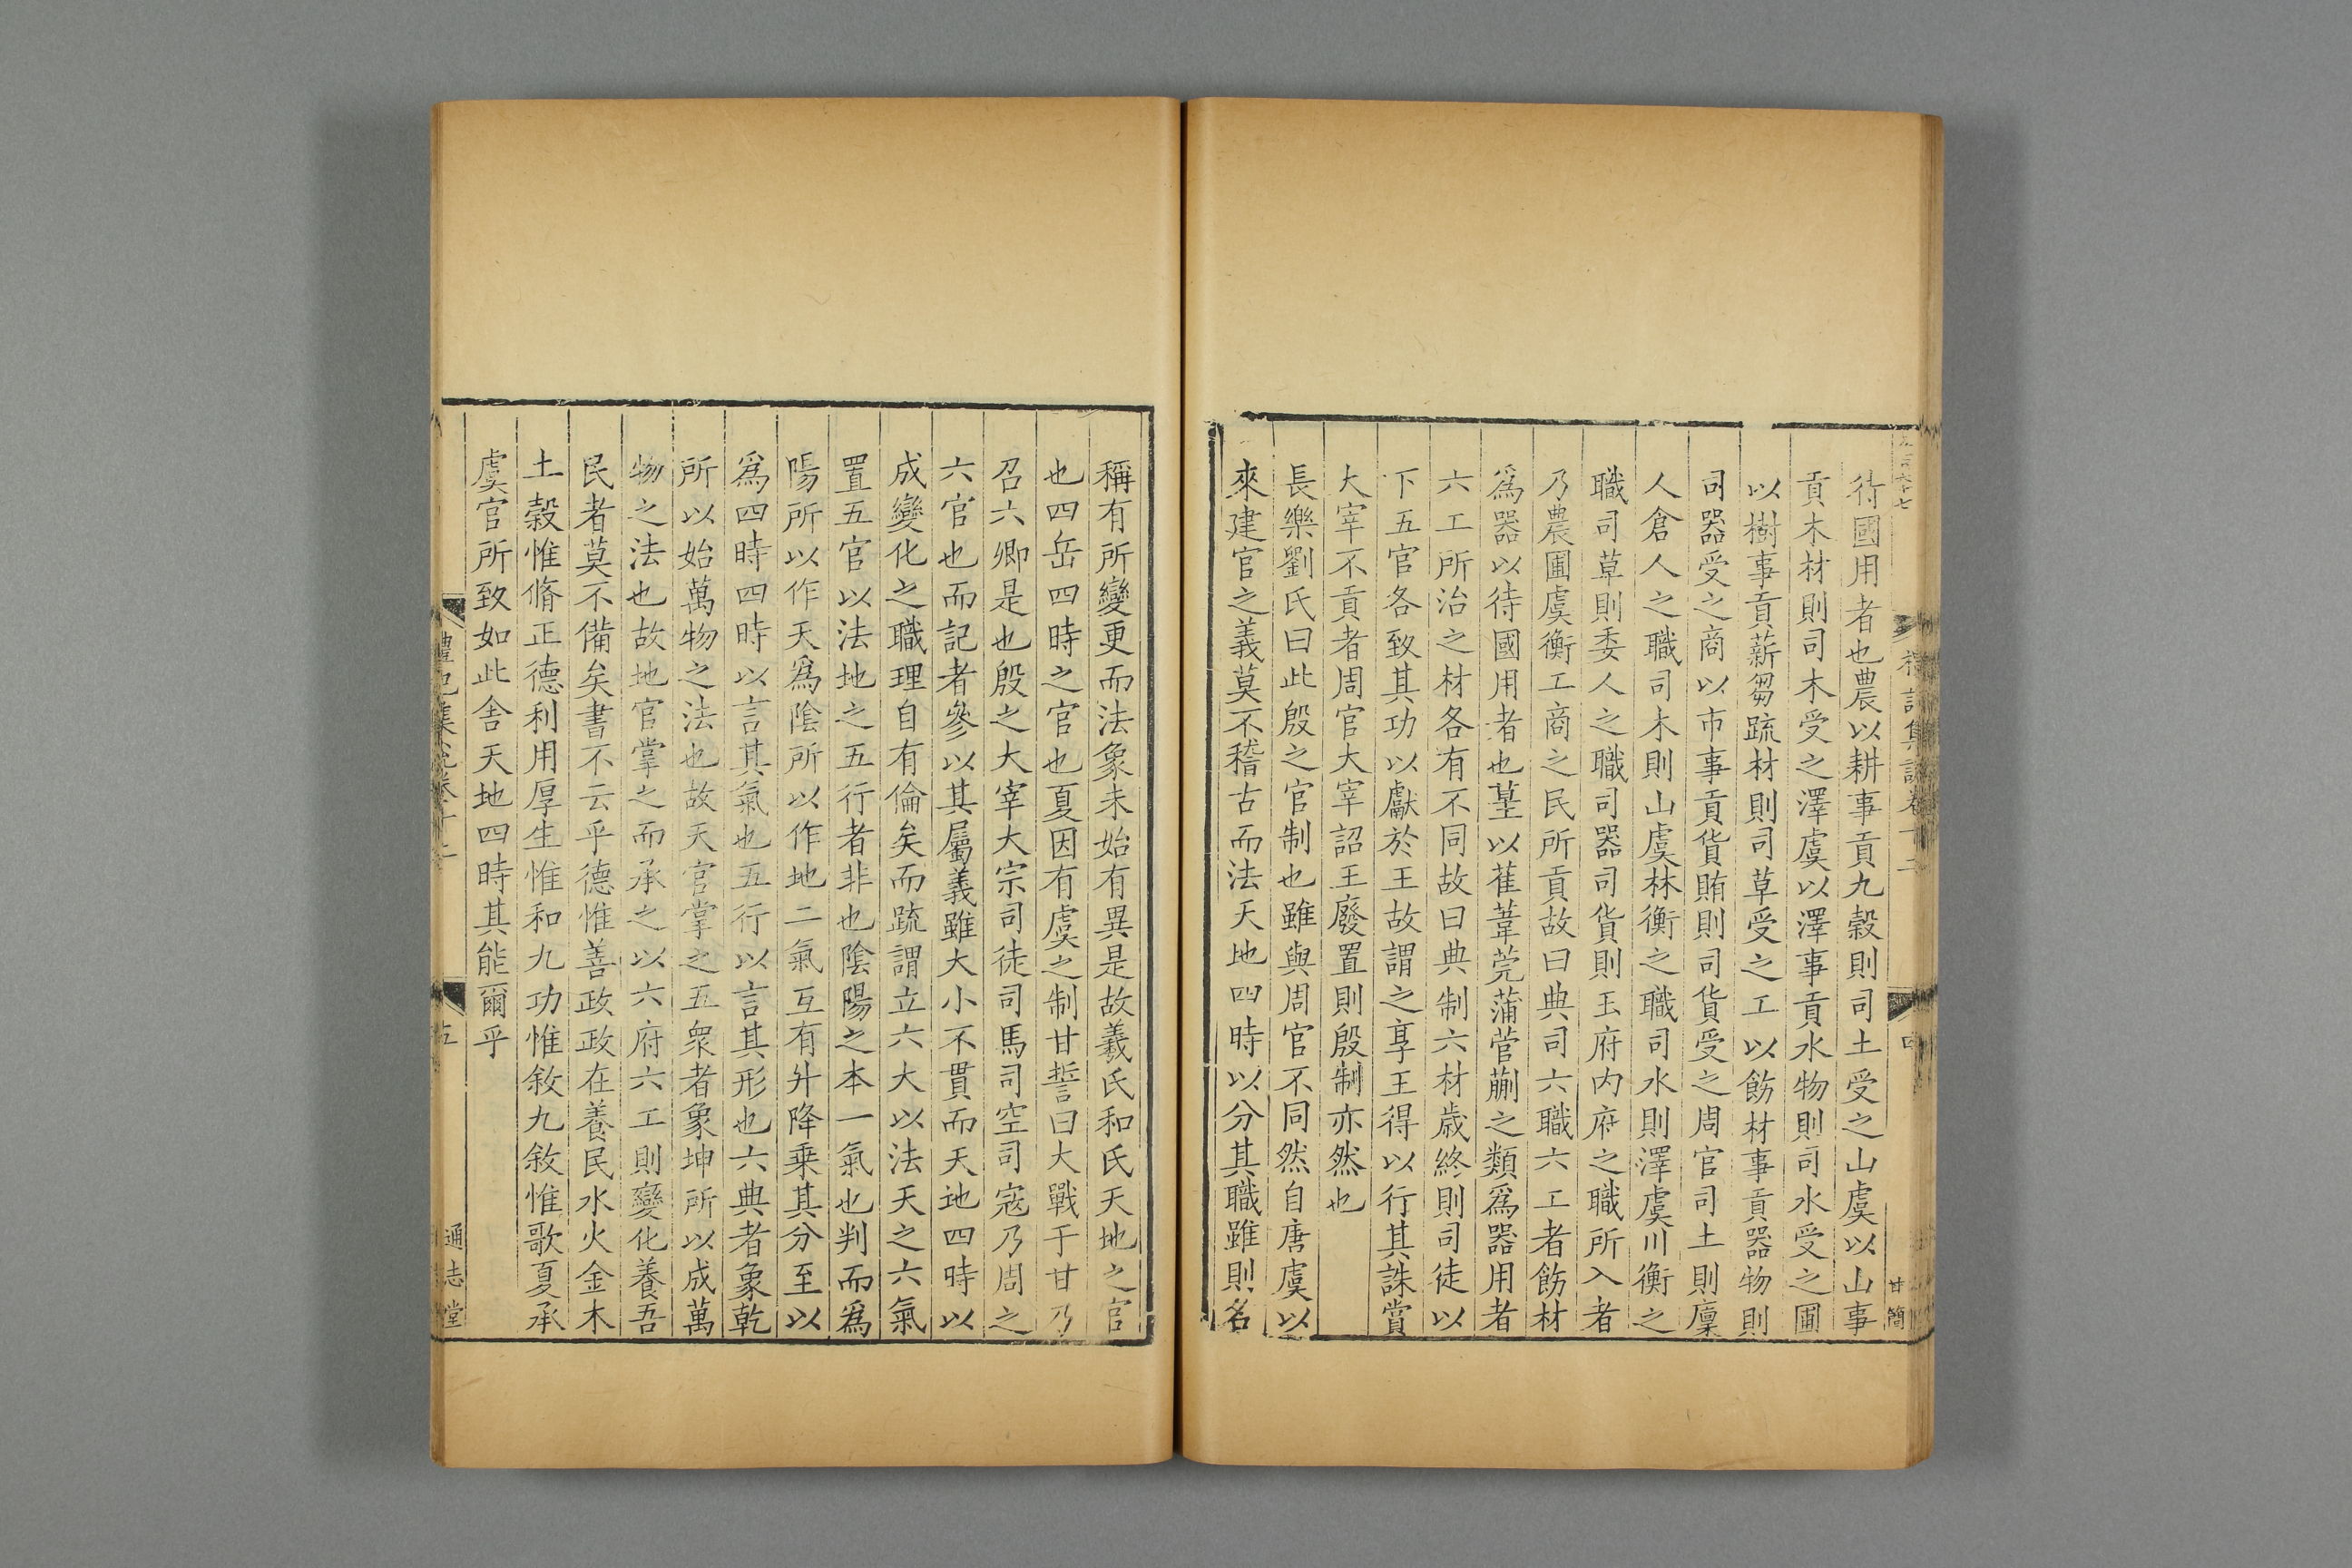 待國用者也農以耕事貢九穀則司土受之山虞以山事
貢木材則司木受之澤虞以澤事貢水物則司水受之圃
以樹事貢薪芻疏材則司草受之工以飭材事貢器物則
司器受之商以市事貢貨賄則司貨受之周官司土則廩
人倉人之職司木則山虞林衡之職司水則澤虞川衡之
職司草則委人之職司器司貨則玉府內府之職所入者
乃農圃虞衡工商之民所貢故曰典司六職六工者飭材
爲器以待國用者也墓以萑葦莞蒲菅蒯之類爲器用者
六工所治之材各有不同故曰典制六材歲終則司徒以
下五官各致其功以獻於王故謂之享王得以行其誅賞
大宰不貢者周官大宰詔王廢置則殷制亦然也
長樂劉氏曰此殷之官制也雖與周官不同然自唐虞以
來建官之義莫不稽古而法天地四時以分其職雖則名
禮記集說卷十二
四
甘簡
稱有所變更而法象未始有異是故羲氏和氏天地之官
也四岳四時之官也夏因有虞之制甘誓曰大戰于甘乃
召六卿是也殷之大宰大宗司徒司馬司空司寇乃周之
六官也而記者參以其屬義雖大小不貫而天地四時以
成變化之職理自有倫矣而疏謂立六大以法天之六氣
置五官以法地之五行者非也陰陽之本一氣也判而爲
陽所以作天爲陰所以作地二氣互有升降乗其分至以
爲四時四時以言其氣也五行以言其形也六典者象乾
所以始萬物之法也故天官掌之五衆者象坤所以成萬
物之法也故地官掌之而承之以六府六工則變化養吾
民者莫不備矣書不云乎德惟善政政在養民水火金木
土穀惟脩正德利用厚生惟和九功惟敘九敘惟歌夏承
虞官所致如此舍天地四時其能爾乎
禮記集說卷十二
五
通志堂